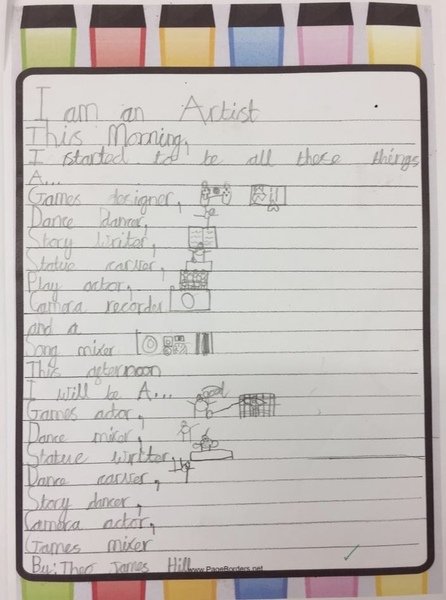 I am an Artist
This Morning,
I started to be all these things
A...
Games designer,
Dance dancer,
Story writer,
Statue carver,
Play actor,
Camera recorder
and a
Song mixer
This afternoon
I will be A...
Games actor,
Dance mixer,
Statue writter
Dance carver,
Story dancer,
Camera actor,
Games mixer
By: Theo James Hill
www.PageBorders.net